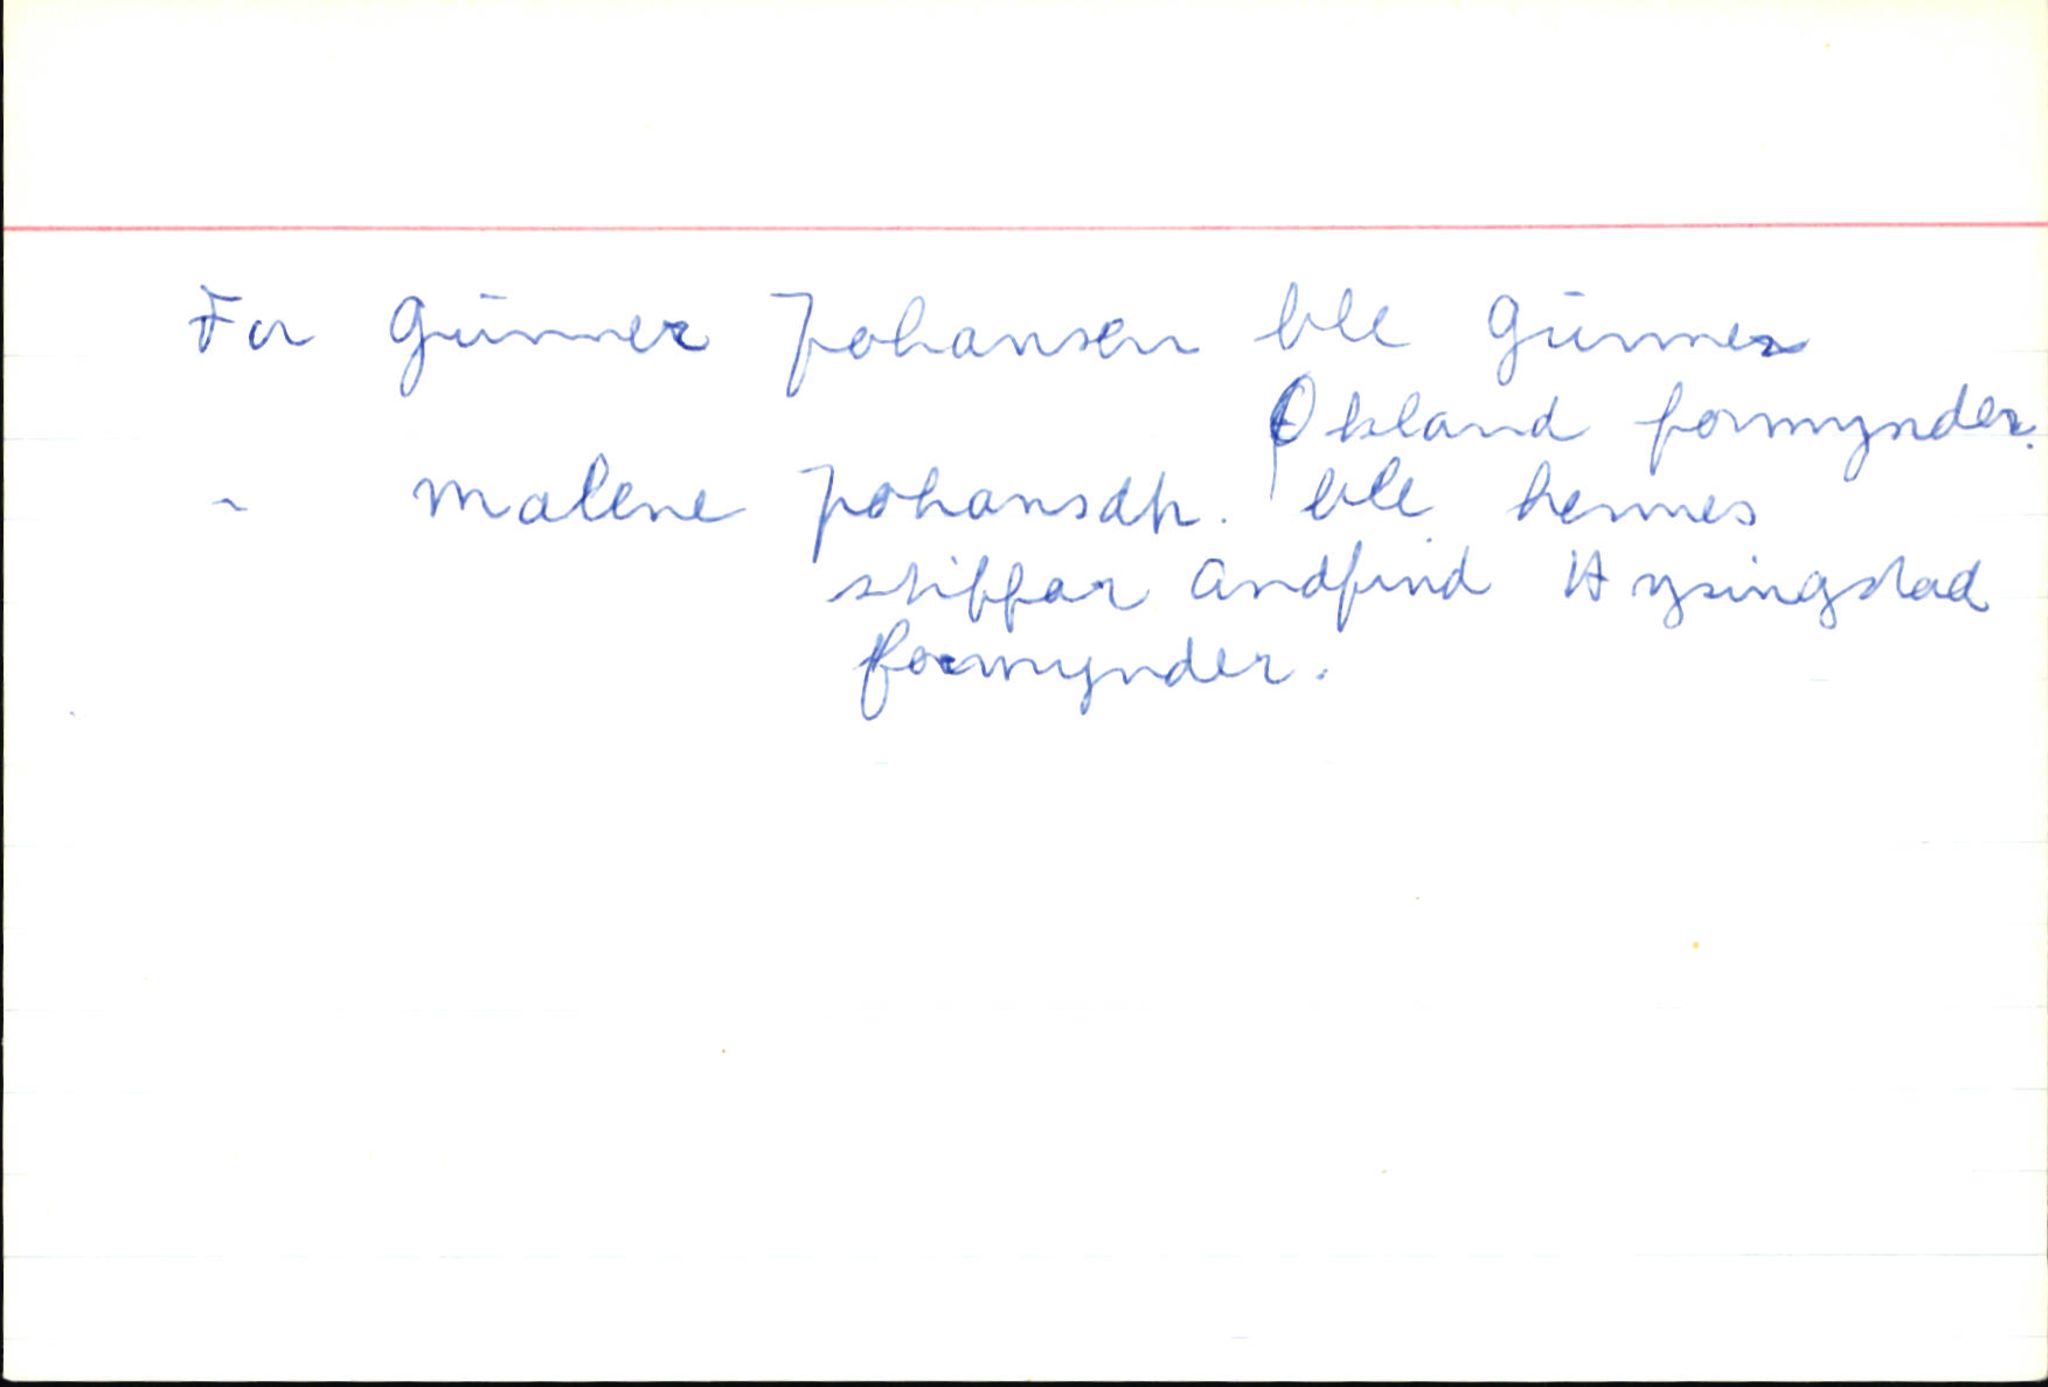 For Gunner Johansen ble Gunner
Øksland formynder.
" Malene Johansdtr. ble hennes
stiffar Andfind Hysingstad
formynder.